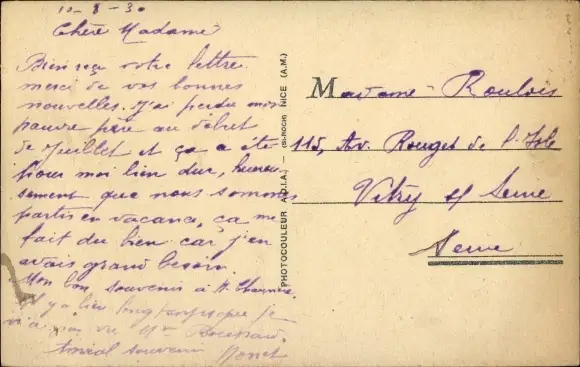 10-8-30
Chère Madame
Bien reçu votre lettre
merci de vos bonnes
nouvelles. J'ai perdu mon
pauvre père au début
de Juillet et ça a été
pour moi bien dur, heureu-
sement que nous sommes
partis en vacance, ça me
fait du bien car j'en
avais grand besoin.
Mon bon souvenir à
il y a bien longtemps que je
n'ai pas vu Mr
Amical souvenir
PHOTOCOULEUR A.D.I.A. — (St-ROCH) NICE (A.M.)
Madame Roulois
115, Av. Rouget de l'Isle
Vitry s/ Seine
Seine